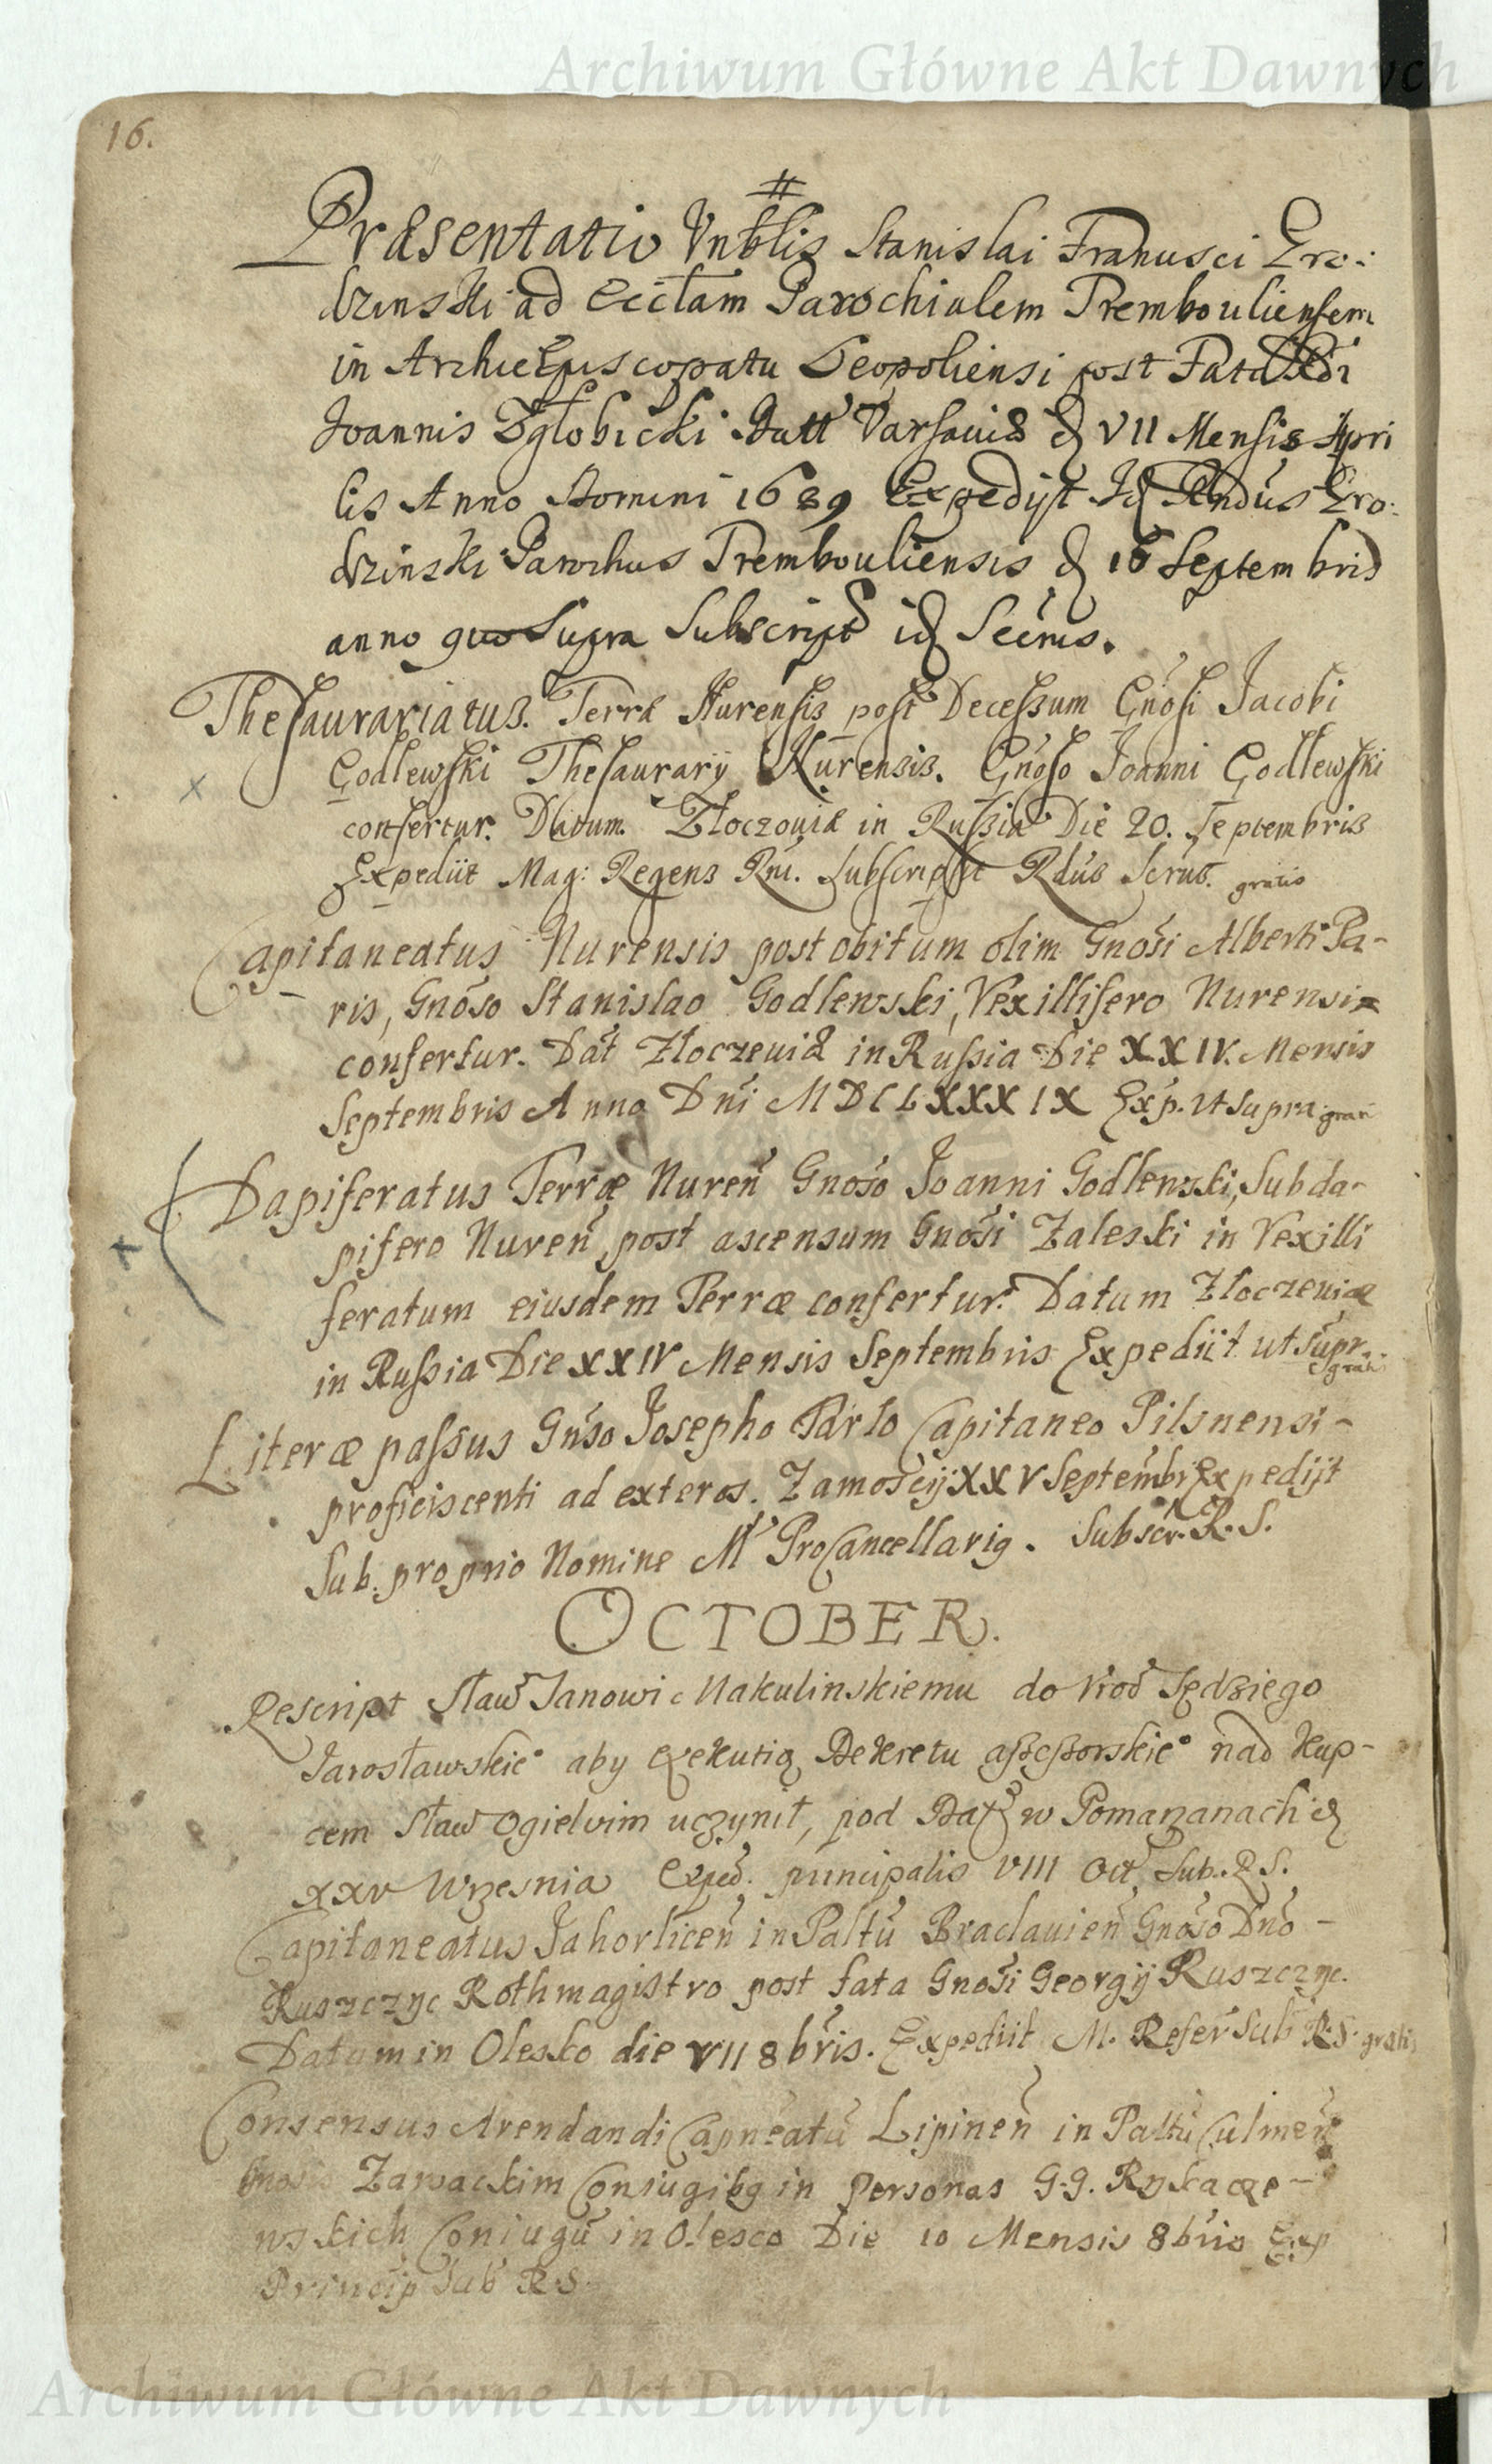 Archiwum Główne Akt Dawnych
16.
#
Præsentatio Vnblis Stanislai Franusci Gro:
dzinski ad Ecctam Parochialem Trembouliensem
in Archiepiscopatu Leopoliensi post Fata
Joannis Zgłobicki Datt Varsauiæ VII Mensis Apri
lis Anno Domini 1689 Expedijt Id Rndus Gro:
dzinski Parochus Trembouliensis 16 Septembris
anno quo Supra Subscript id Secrius.
Thesaurariatus. Terræ Nurensis post Decessum Gnosi Jacobi
Godlewski Thesaurarij Nurensis. Gnoso Joanni Godlewski
confertur. Datum. Złoczouiæ in Russia Die 20. Septembris
Expediit Mag: Regens Rni. Subscripsit Rdus Scrus. gratis
Capitaneatus Nurensis post obitum olim Gnosi Alberti Pa-
ris, Gnoso Stanislao Godlewski, Vexillifero Nurensi
confertur. Dat Złoczeuiæ in Russia Die XXIV. Mensis
Septembris Anno Dni MDCLXXXIX Exp. ut supra grati
Dapiferatus Terræ Nureñ Gnoso Joanni Godlewski, Subda-
pifero Nureñ post ascensum Gnosi Zaleski in Vexilli
feratum eiusdem Terræ confertur. Datum Złoczeuiæ
in Russia Die XXIV Mensis Septembris Expediit ut supr.
gratis
Literæ passus Gnso Josepho Tarło Capitaneo Pilsnensi-
proficiscenti ad exteros. Zamoscij XXV Septembr Expedijt
Sub. proprio Nomine M ProCancellarig. Subscr. R. S.
OCTOBER.
Rescript Sław Janowi Nakulinskiemu do Sędziego
Jarosławskie° aby exekutią Dekretu assessorskie° nad Kup-
cem Sław Ogielvim uczynił, pod Dat w Pomarzanach d
XXV Wrzesnia Exped. principalis VIII Oct Sub. R S.
Capitaneatus Jahorliceñ in Paltu Braclauieñ Gnoso Dno -
Ruszczyc Rothmagistro post fata Gnosi Georgij Ruszczyc.
Datum in Olesko die VII 8bris. Expediit M. Refer Sub R. S. gratis
Consensus Arendandi Capneatu Lipineñ in Paltu Culmeñ
Gnosis Zawackim Coniugibg in personas G.G. Rykacze-
wskich Coniugu in Olesco Die 10 Mensis 8bris Exp
Princip Sub R S.
Archiwum Główne Akt Dawnych